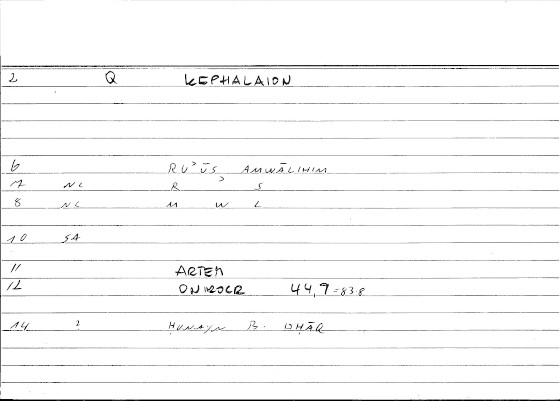 2 Q KEPHALAION
6 RUʾŪS AMWĀLIHIM
7 NC R ʾ S
8 NC M W L
10 SA
11 ARTEM
12 ONIROCR 44,9 =83.8
14 ? ḤUNAYN B. ISḤĀQ